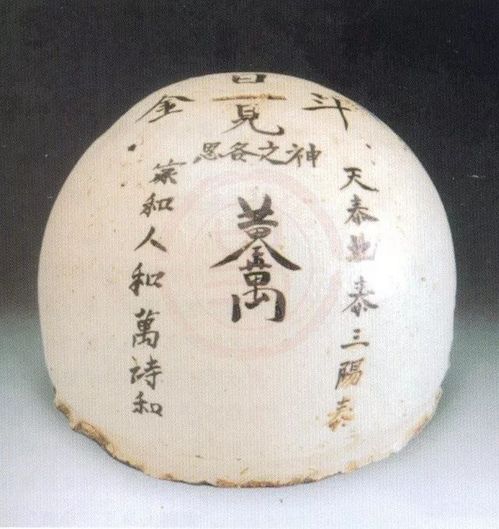 日見斗金
神之各思
天泰地泰三陽泰
黃金萬兩
和人和萬詩和